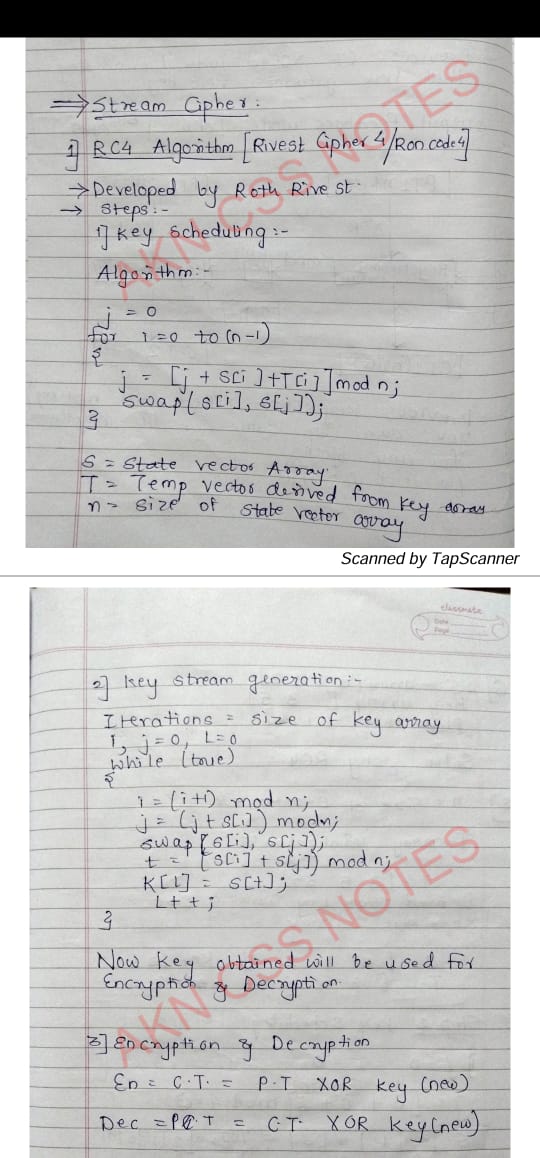 ⇒ Stream Cipher:
1] RC4 Algorithm [Rivest Cipher 4/Ron code 4]
→ Developed by Roth Rivest.
→ Steps:-
1] Key Scheduling:-
Algorithm:-
j = 0
for i=0 to (n-1)
{
j = [j + S[i]+T[i]] mod n;
swap(S[i], S[j]);
}
S = State vector Array
T = Temp vector derived from key array
n = size of state vector array
AKN CSS NOTES
Scanned by TapScanner
classmate
Date
Page
2] Key stream generation:-
Iterations = size of key array
i, j=0, L=0
while (true)
{
i = (i+1) mod n;
j = (j+S[i]) mod n;
swap[S[i], S[j]);
t = (S[i] + S[j]) mod n;
K[L] = S[t];
L++;
}
Now key obtained will be used for
Encryption & Decryption.
AKN CSS NOTES
3] Encryption & Decryption
En = C.T. = P.T XOR key (new)
Dec = P.T = C.T. XOR key (new)